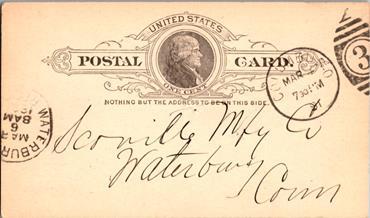 UNITED STATES
POSTAL CARD.
ONE CENT
NOTHING BUT THE ADDRESS TO BE ON THIS SIDE.
MAR
730 PM
3
WATERBUR
MAR
6
8AM
Scoville Mfg Co
Waterbury
Conn